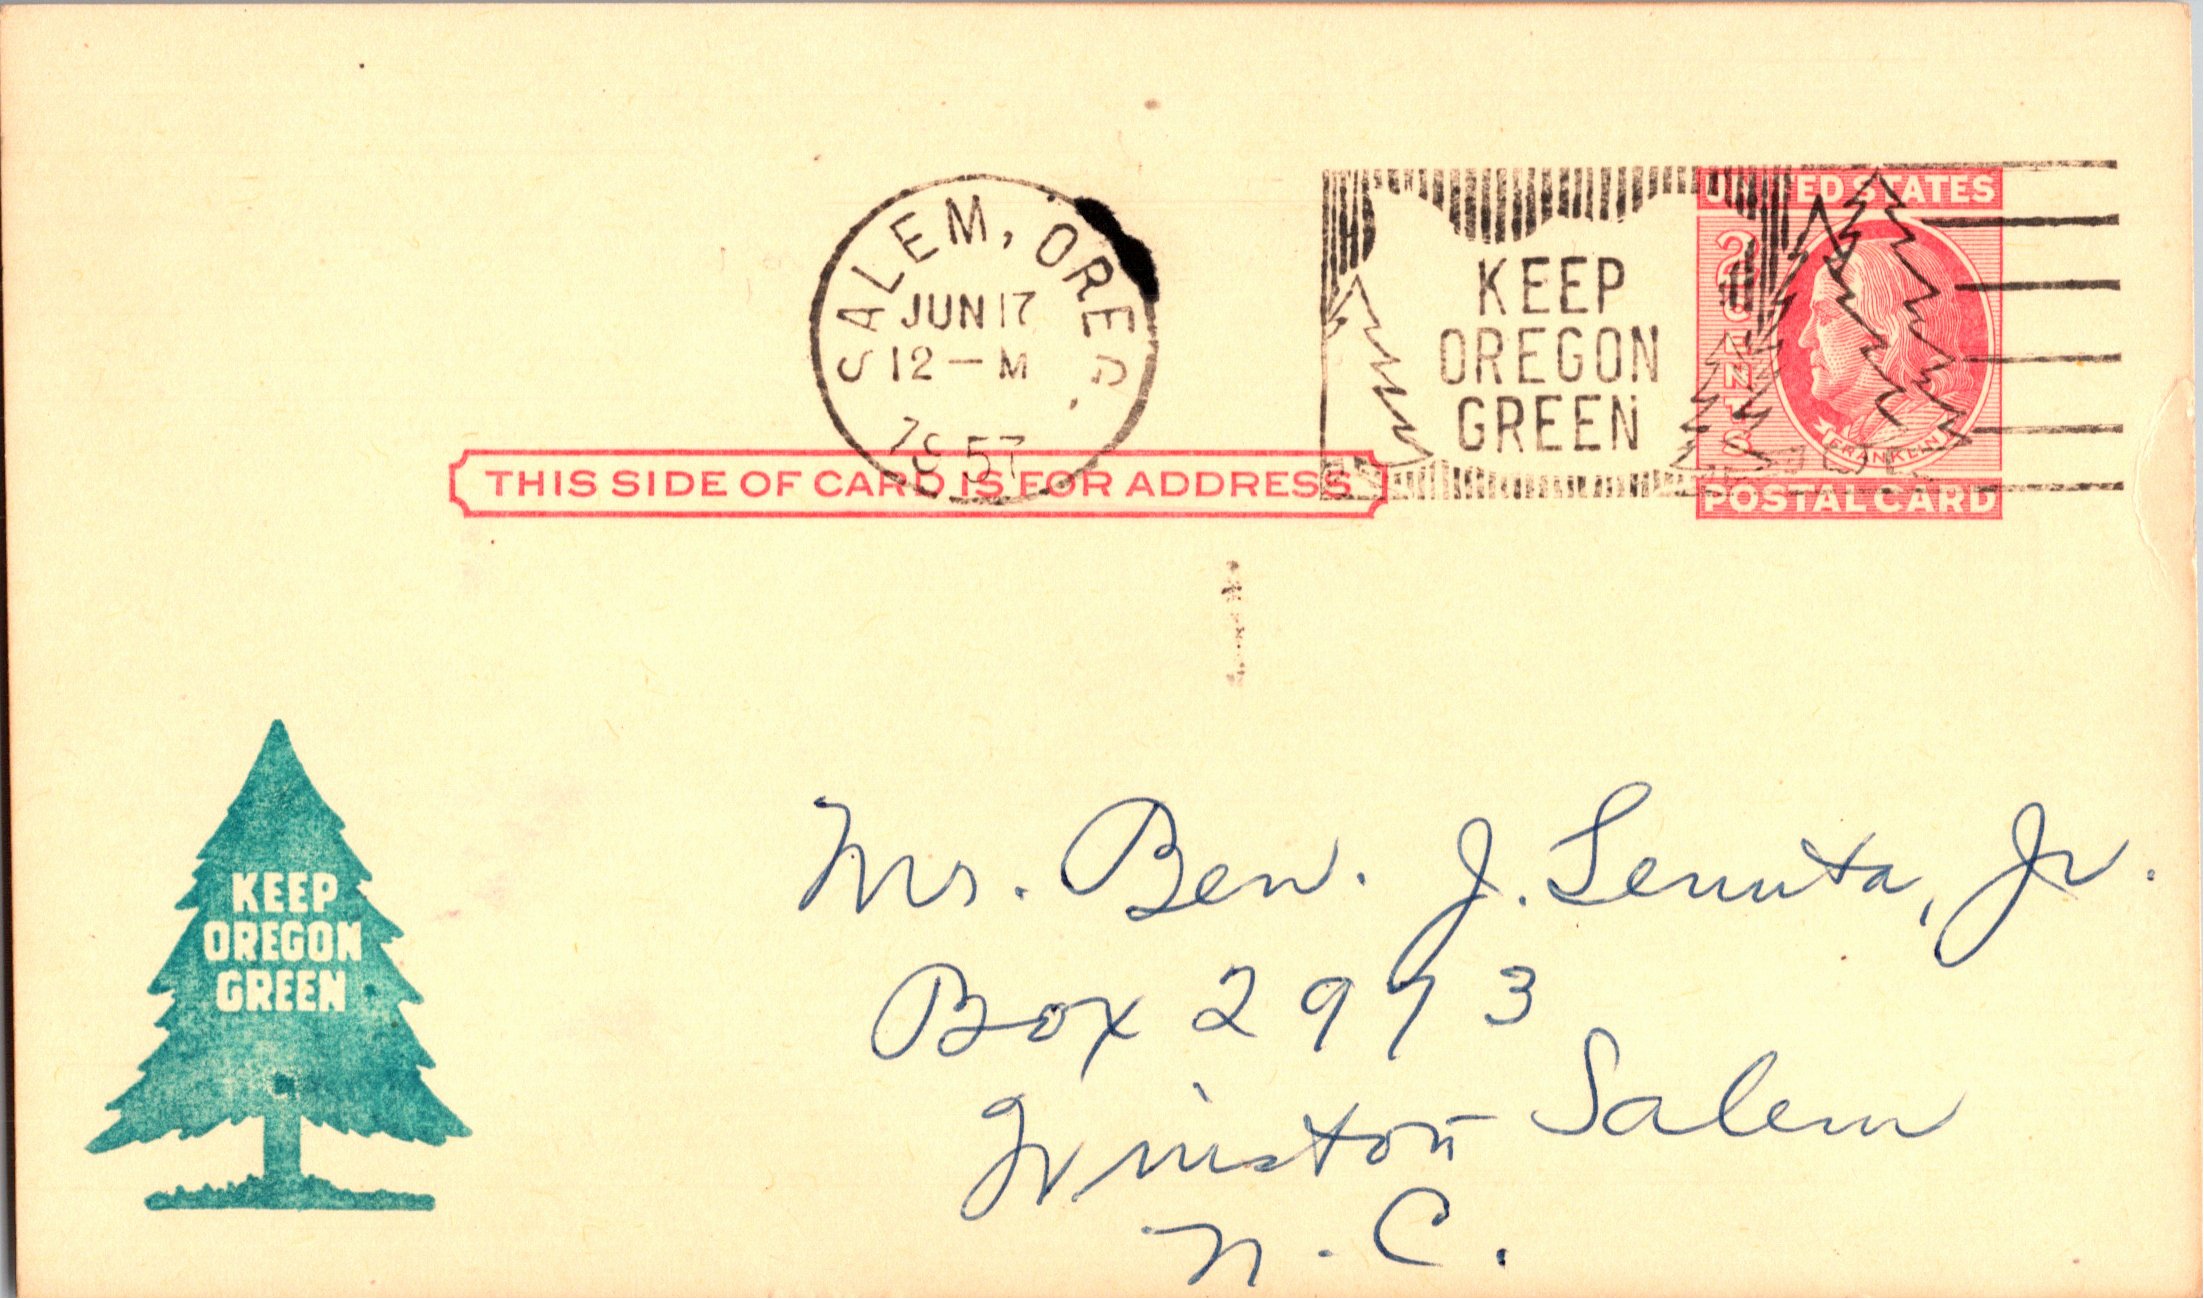 SALEM, OREG.
JUN 17
12 - M
1957
KEEP
OREGON
GREEN
UNITED STATES
2 CENTS
FRANKLIN
POSTAL CARD
THIS SIDE OF CARD IS FOR ADDRESS
KEEP
OREGON
GREEN
Mr. Ben. J. Jr.
Box 2973
Winston Salem
N.C.